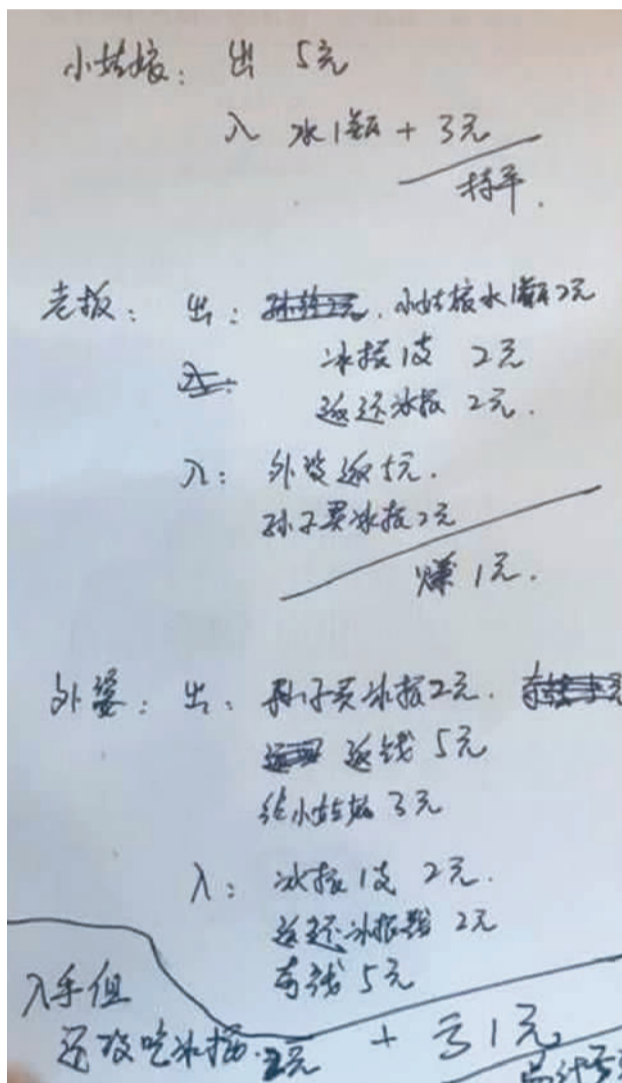 小姑娘：出 5元
入 水1瓶 + 3元
持平.
老板：出：小姑娘水1瓶2元
冰棍1支 2元
返还冰棍 2元.
入：外婆返5元.
孙子买冰棍2元
赚1元.
外婆：出：孙子买冰棍2元.
返钱 5元
给小姑娘 3元
入：冰棍1支 2元.
返还冰棍钱 2元
5元
入手但
还没吃冰棍.2元 + 亏1元